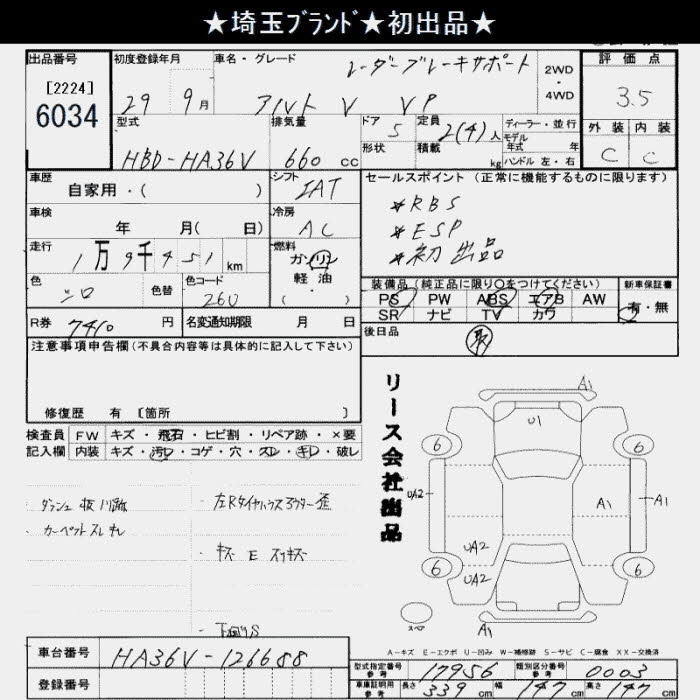 ★埼玉ﾌﾞﾗﾝﾄﾞ★初出品★
出品番号
[2224]
6034
初度登録年月
29 9月
車名・グレード
レーダーブレーキサポート
アルト V VP
2WD
・
4WD
評価点
3.5
外装 内装
C C
型式
HBD-HA36V
排気量
660 cc
ドア 5
形状
定員 2(4)人
積載 kg
ディーラー・並行
モデル
年式 年
ハンドル 左・右
車歴
自家用・( )
シフト
IAT
セールスポイント(正常に機能するものに限ります)
*RBS
*ESP
*初出品
車検
年 月( 日)
冷房
AC
走行
1万9千451km
燃料
ガソリン
軽油
( ・ )
色
シロ
色替
色コード
26U
装備品(純正品に限り○をつけてください)
PS PW ABS エアB AW
SR ナビ TV カワ
新車保証書
有・無
R券 7410 円
名変通知期限 月 日
後日品
取
注意事項申告欄(不具合内容等は具体的に記入して下さい)
修復歴 有 [箇所 ]
検査員
記入欄
FW キズ・飛石・ヒビ割・リペア跡・×要
内装 キズ・汚レ・コゲ・穴・スレ・キレ・破レ
リース会社出品
カーペットスレ キレ
左Rタイヤハウスアウター歪
キズ E
A1
U1
6
6
UA2
A1
A1
UA2
6
UA2
6
A1
スペア
A-キズ E-エクボ U-凹み W-補修跡 S-サビ C-腐食 XX-交換済
車台番号 HA36V-126688
登録番号
型式指定番号
参考
17956
類別区分番号
参考
0003
車庫証明用
参考
長さ 339 cm 幅 147 cm 高さ 147 cm